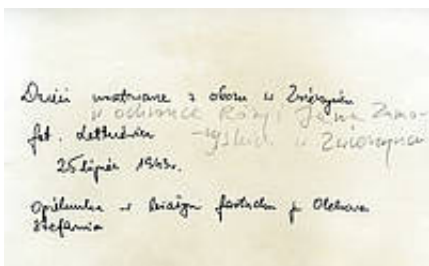 Dzieci uratowane z obozu w Zwierzyńcu
w ochronce Róży i Jana Zamo-
fot. -yskich w Zwierzyńcu
25 lipiec 1943r.
Opiekunka w białym fartuchu p. Olchowa
Stefania